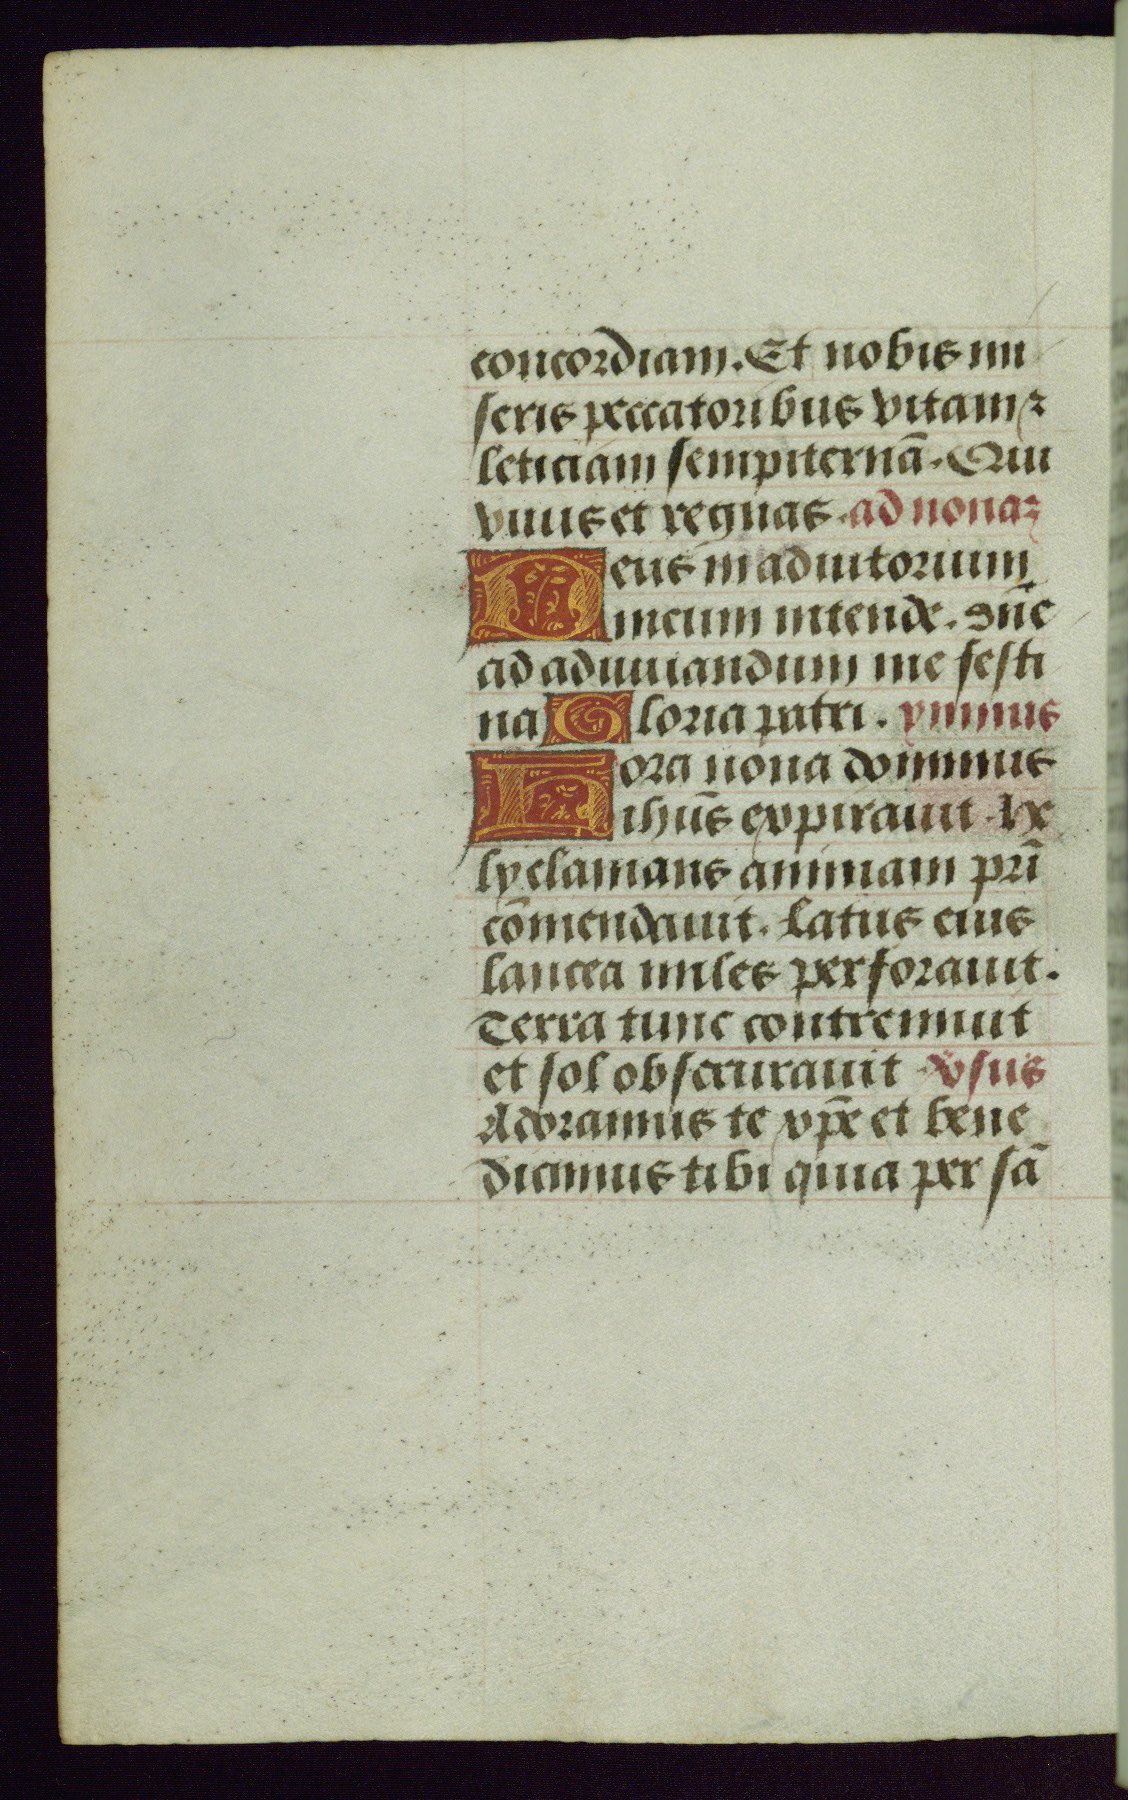 concordiam. Et nobis mi
seris peccatoribus vitam ⁊
leticiam sempiternā. Qui
viuis et regnas. ad nonaꝫ
Deus in adiutorium
meum intende. Dn̄e
ad adiuuandum me festi
na Gloria patri. ymnus
Hora nona dominus
ihūs expirauit hе
ly clamans animam pr̄i
cōmendauit. Latus eius
lancea miles perforauit.
Terra tunc contremuit
et sol obscurauit v̄sus
Adoramus te xp̄e et bene
dicimus tibi quia per sā